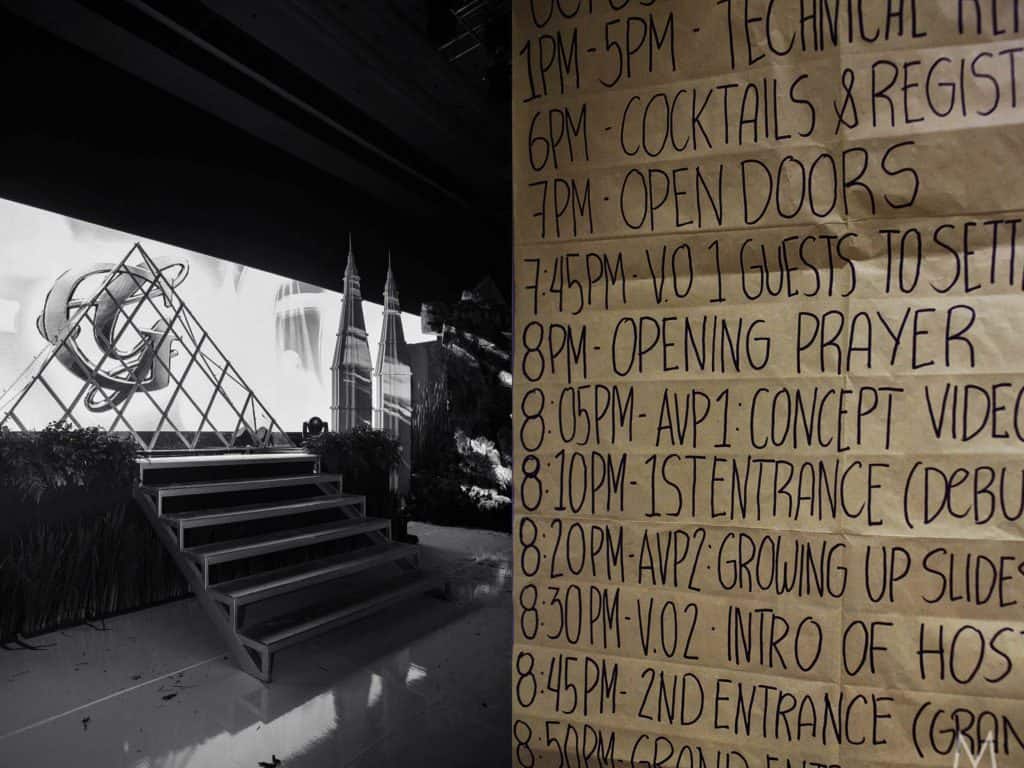 1PM - 5PM - TECHNICAL
6PM - COCKTAILS & REGIST
7PM - OPEN DOORS
7:45PM - V.O 1 GUESTS TO SETT
8PM - OPENING PRAYER
8:05PM - AVP1: CONCEPT VIDEO
8:10PM - 1ST ENTRANCE (DeBU
8:20PM - AVP2: GROWING UP SLIDES
8:30PM - V.O2 - INTRO OF HOS
8:45PM - 2ND ENTRANCE (GRAN
8:50PM - GRAND ENT
M